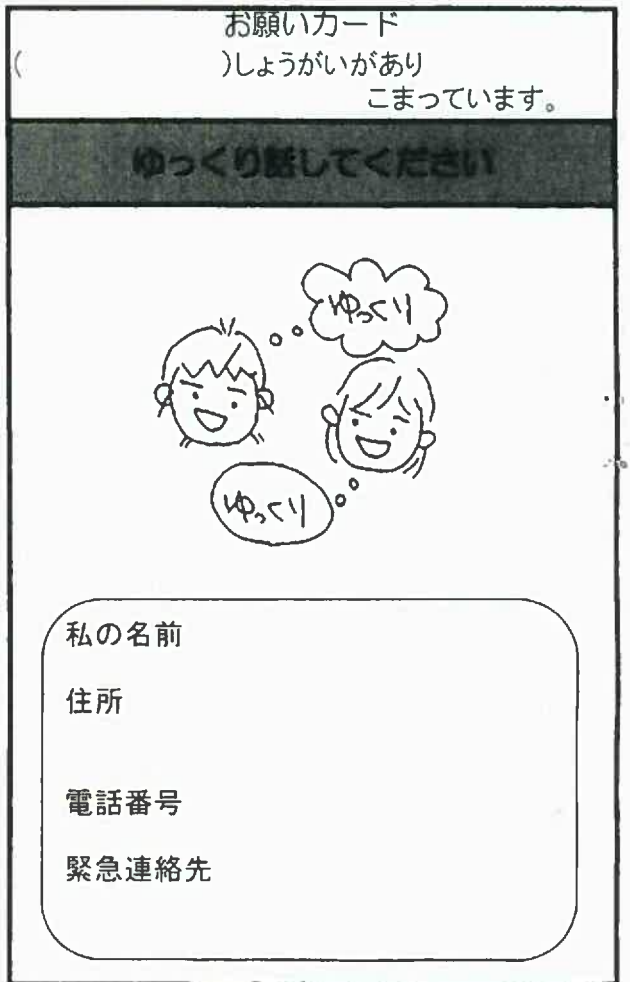 お願いカード
(　　　　　　)しょうがいがあり
こまっています。
ゆっくり話してください
ゆっくり
ゆっくり
私の名前
住所
電話番号
緊急連絡先